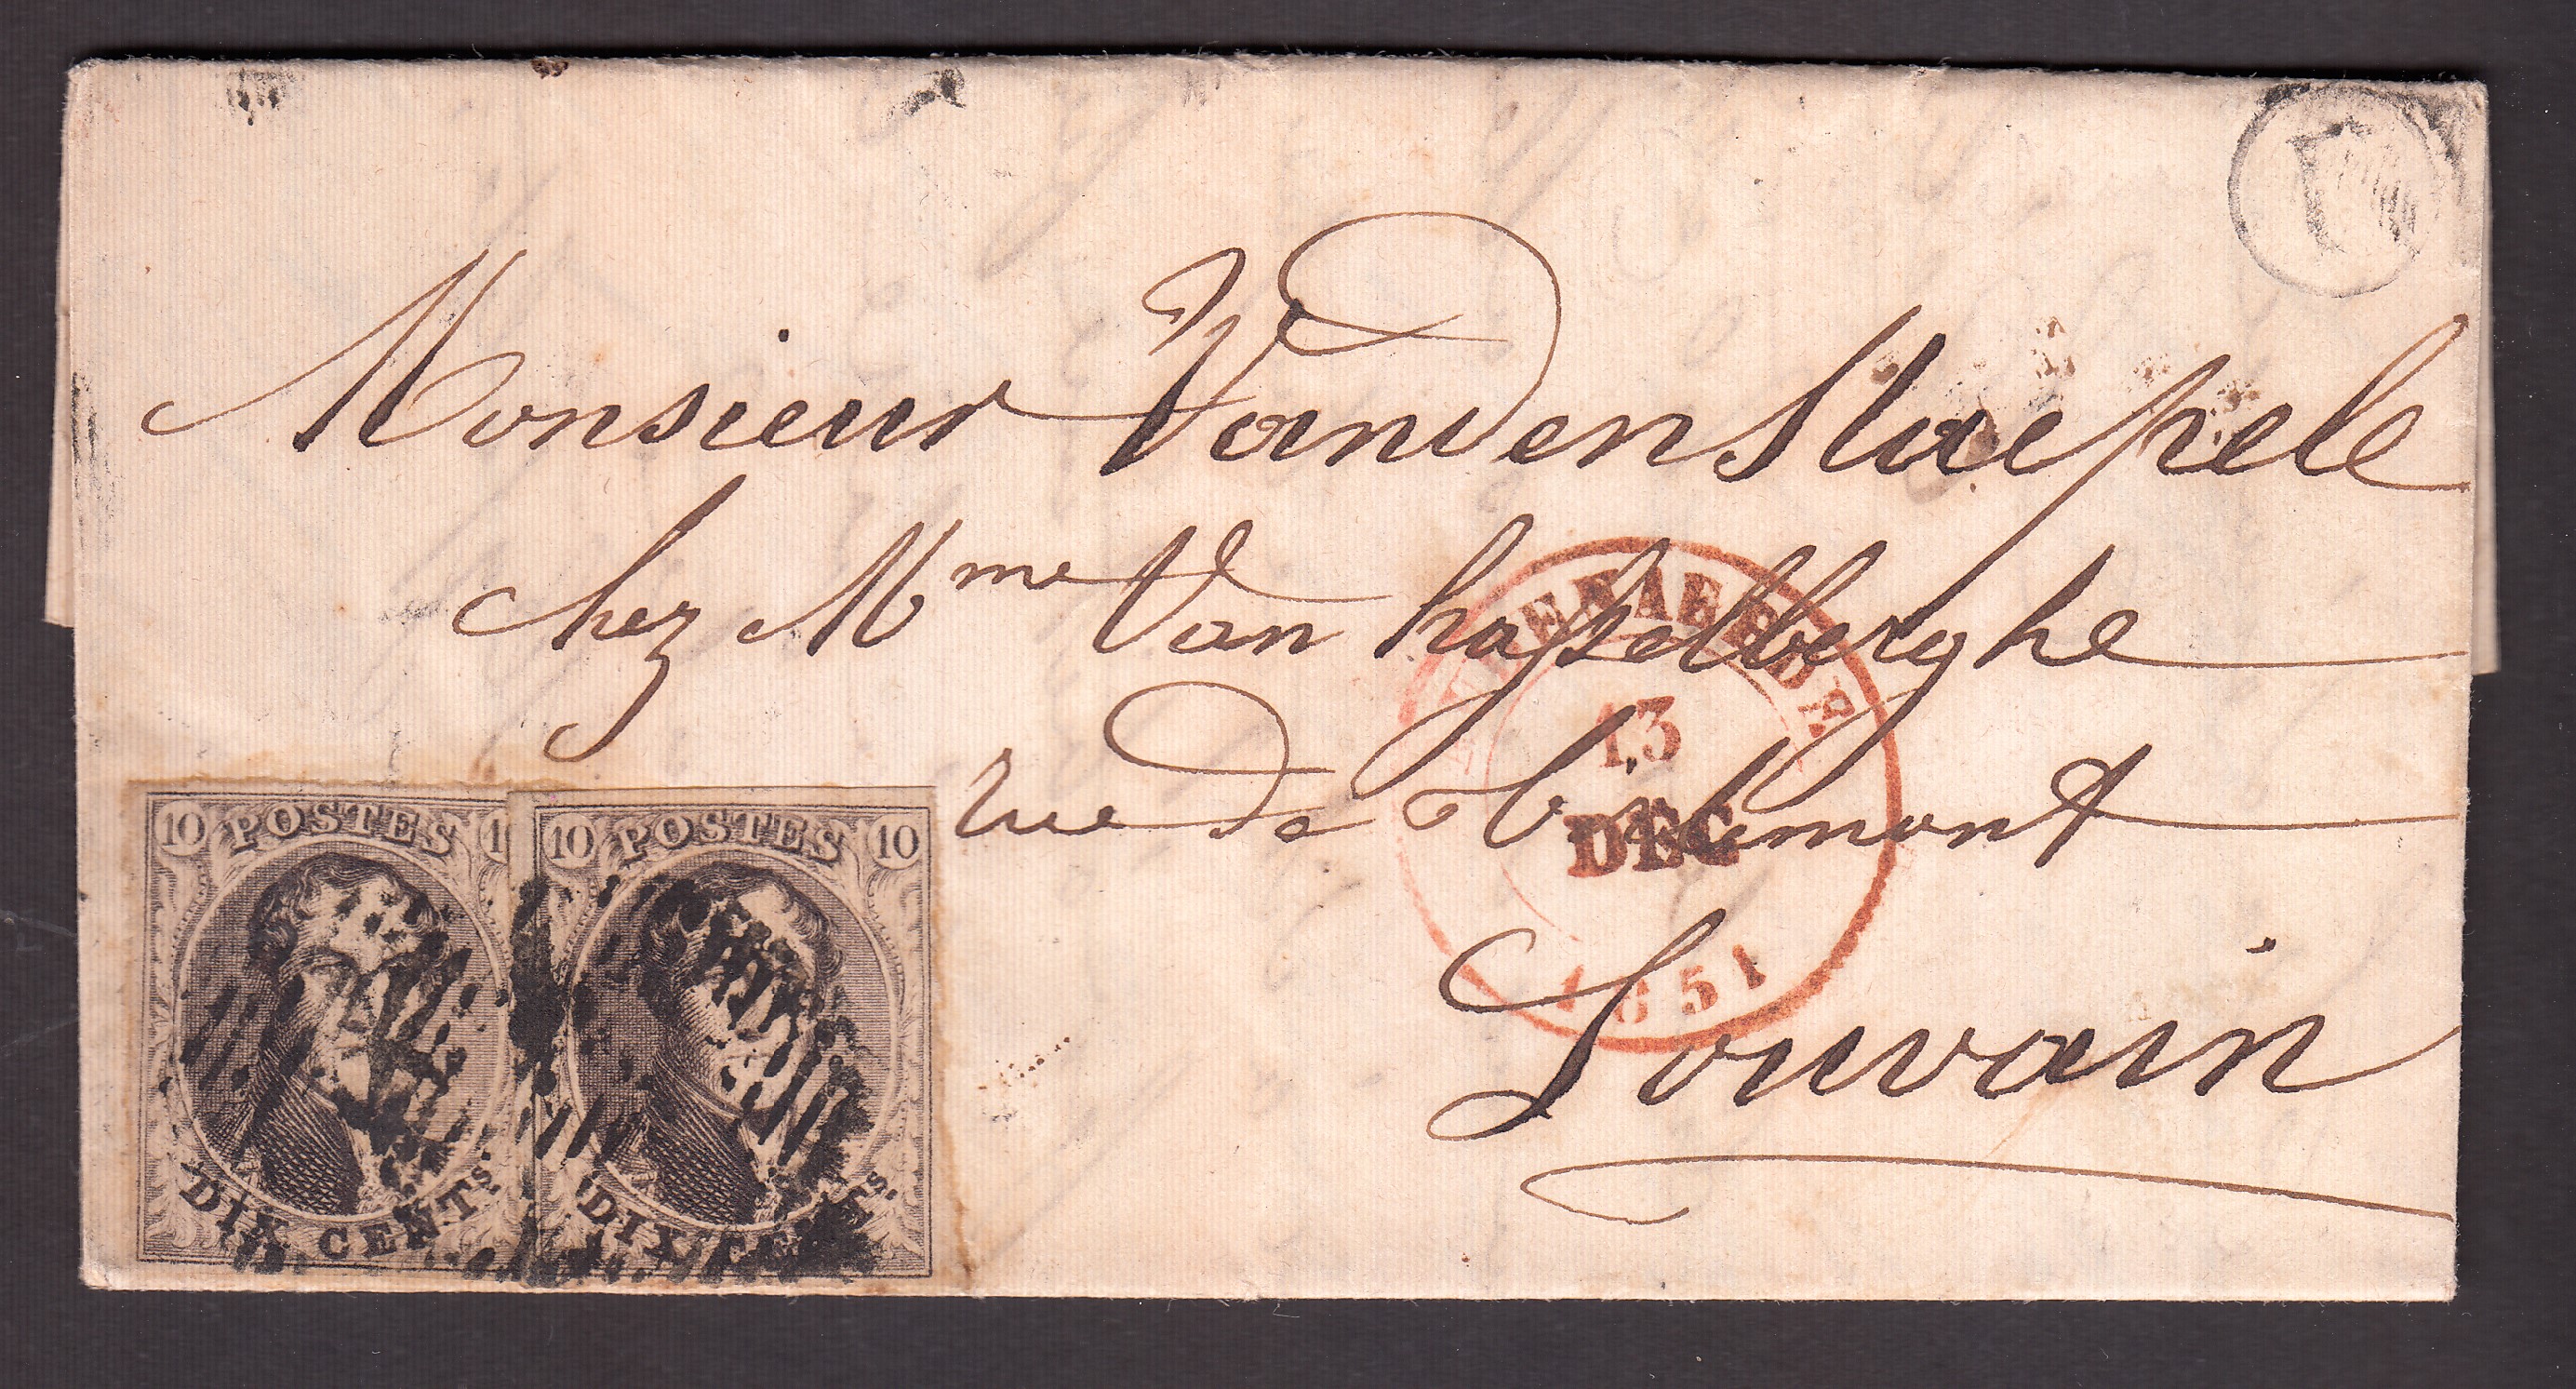 Monsieur Vandenstaepele
chez Mme Van hasselberghe
rue de Tirlemont
Louvain
AUDENAERDE
13
DEC
1851
10 POSTES 1
DIX CENTS.
10 POSTES 10
DIX CENTS.